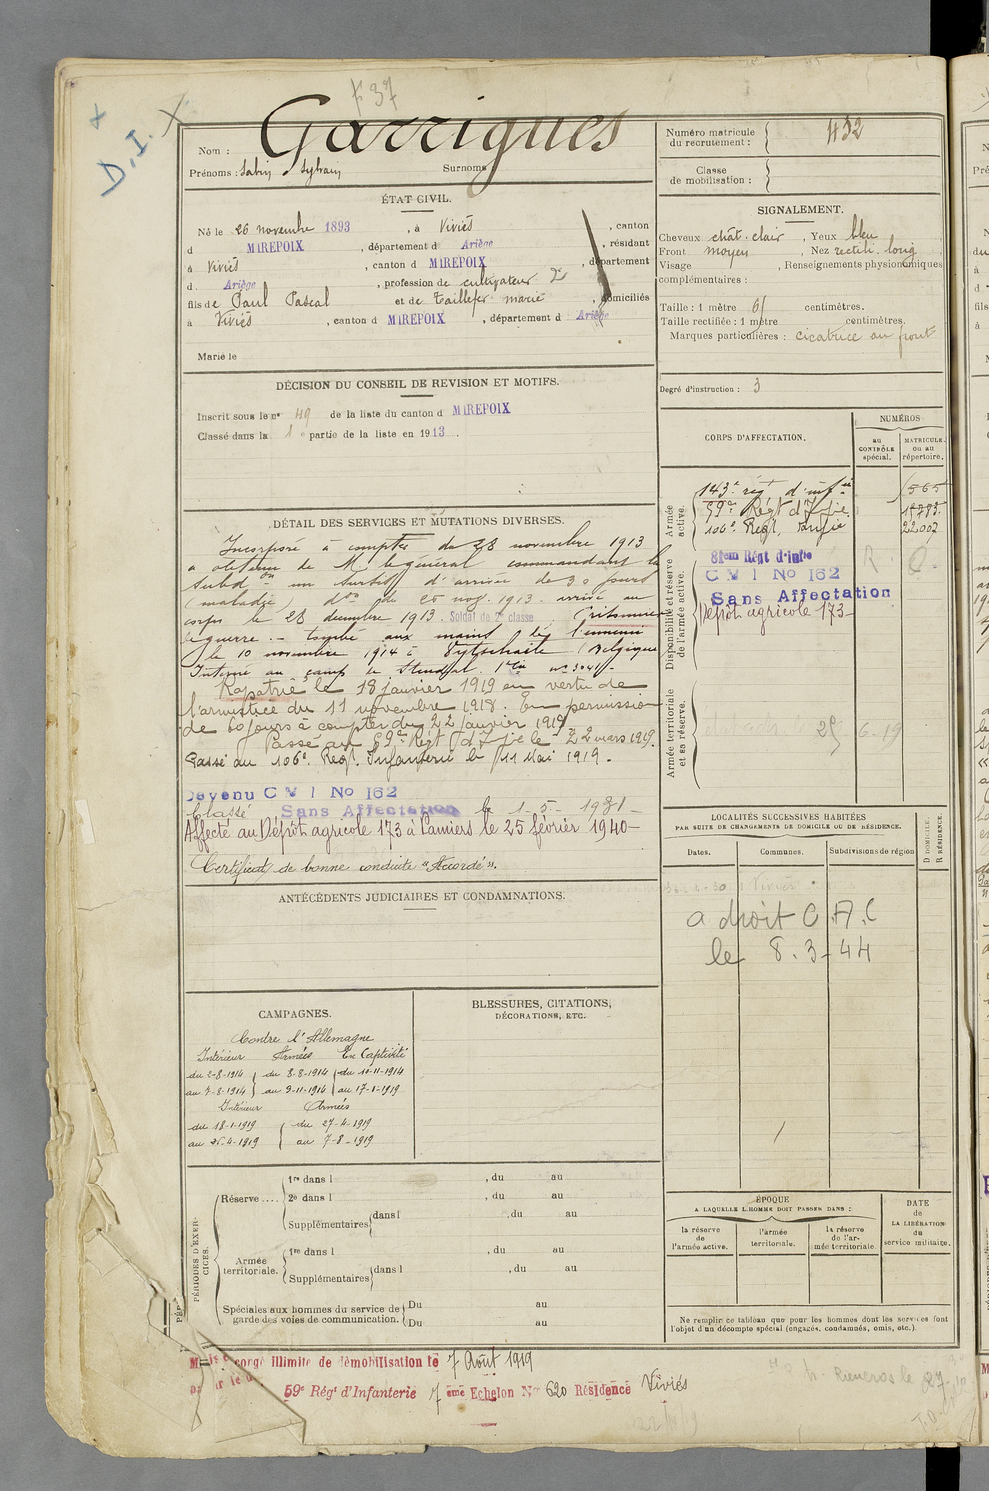 F 37
D. I.
Nom : Garrigues
Prénoms : Sabin Sylvain Surnoms
ÉTAT CIVIL.
Né le 26 novembre 1893, à Viviès, canton
d MIREPOIX, département d Ariège, résidant
à Viviès, canton d MIREPOIX, département
d Ariège, profession de cultivateur
fils de Paul Pascal et de Taillefer marie, domiciliés
à Viviès, canton d MIREPOIX, département d Ariège
Marié le
DÉCISION DU CONSEIL DE REVISION ET MOTIFS.
Inscrit sous le n° 49 de la liste du canton d MIREPOIX
Classé dans la 1e partie de la liste en 1913.
DÉTAIL DES SERVICES ET MUTATIONS DIVERSES.
Incorporé à compter du 28 novembre 1913
a obtenu de Mr le général commandant la
subdon un sursis d'arrivée de 30 jours
(maladie don de 25 nov. 1913. arrivé au
corps le 28 décembre 1913. Soldat de 2e classe. Prisonnier
de guerre. - tombé aux mains de l'ennemi
le 10 novembre 1914 à Vytschaëte (Belgique
Interné au camp de Stendal. 1re Cie n° 3041.
Rapatrié le 18 janvier 1919 en vertu de
l'armistice du 11 novembre 1918. En permission
de 60 jours à compter du 22 Janvier 1919
Passé au 59e Régt d'Ifie le 22 mars 1919.
Passé au 106e Régt. Infanterie le 11 Mai 1919.
Devenu C M I No 162
Classé Sans Affectation le 1-5-1931
Affecté au Dépôt agricole 173 à Pamiers le 25 février 1940-
Certificat de bonne conduite "Accordé".
ANTÉCÉDENTS JUDICIAIRES ET CONDAMNATIONS.
CAMPAGNES.
Contre l'Allemagne
Intérieur Armées En Captivité
du 2-8-1914 du 8-8-1914 du 10-11-1914
au 7-8-1914 au 9-11-1914 au 17-1-1919
Intérieur Armées
du 18-1-1919 du 27-4-1919
au 26-4-1919 au 7-8-1919
BLESSURES, CITATIONS,
DÉCORATIONS, ETC.
PÉRIODES D'EXERCICES.
Réserve .... 1re dans l , du au
2e dans l , du au
Supplémentaires dans l , du au
Armée territoriale. 1re dans l , du au
Supplémentaires dans l , du au
Spéciales aux hommes du service de Du au
garde des voies de communication. Du au
Numéro matricule
du recrutement : 432
Classe
de mobilisation :
SIGNALEMENT.
Cheveux chât. clair, Yeux bleu
Front moyen, Nez rectili. long
Visage , Renseignements physionomiques
complémentaires :
Taille : 1 mètre 61 centimètres.
Taille rectifiée : 1 mètre centimètres.
Marques particulières : cicatrice au front
Degré d'instruction : 3
CORPS D'AFFECTATION.
NUMÉROS
au
CONTRÔLE
spécial.
MATRICULE
ou au
répertoire.
Armée
active.
143e rég d'infie 565
59e Régt d'Ifie
106e Régt Infie 22002
Disponibilité et réserve
de l'armée active.
81em Régt d'Infie R C.
C M I No 162
Sans Affectation
Dépôt agricole 173-
Armée territoriale
et sa réserve.
6-19
LOCALITÉS SUCCESSIVES HABITÉES
PAR SUITE DE CHANGEMENTS DE DOMICILE OU DE RÉSIDENCE.
Dates. Communes. Subdivisions de région
D DOMICILE.
R RÉSIDENCE.
Viviès
a droit C.A.C
le 8.3-44
ÉPOQUE
A LAQUELLE L'HOMME DOIT PASSER DANS :
la réserve
de
l'armée active.
l'armée
territoriale.
la réserve
de l'ar-
mée territoriale.
DATE
de
LA LIBÉRATION
du
service militaire.
Ne remplir ce tableau que pour les hommes dont les services font
l'objet d'un décompte spécial (engagés, condamnés, omis, etc.).
congé illimité de démobilisation le 7 Août 1919
59e Régt d'Infanterie 7 ème Echelon No 620 Résidence Viviès
Rieucros le